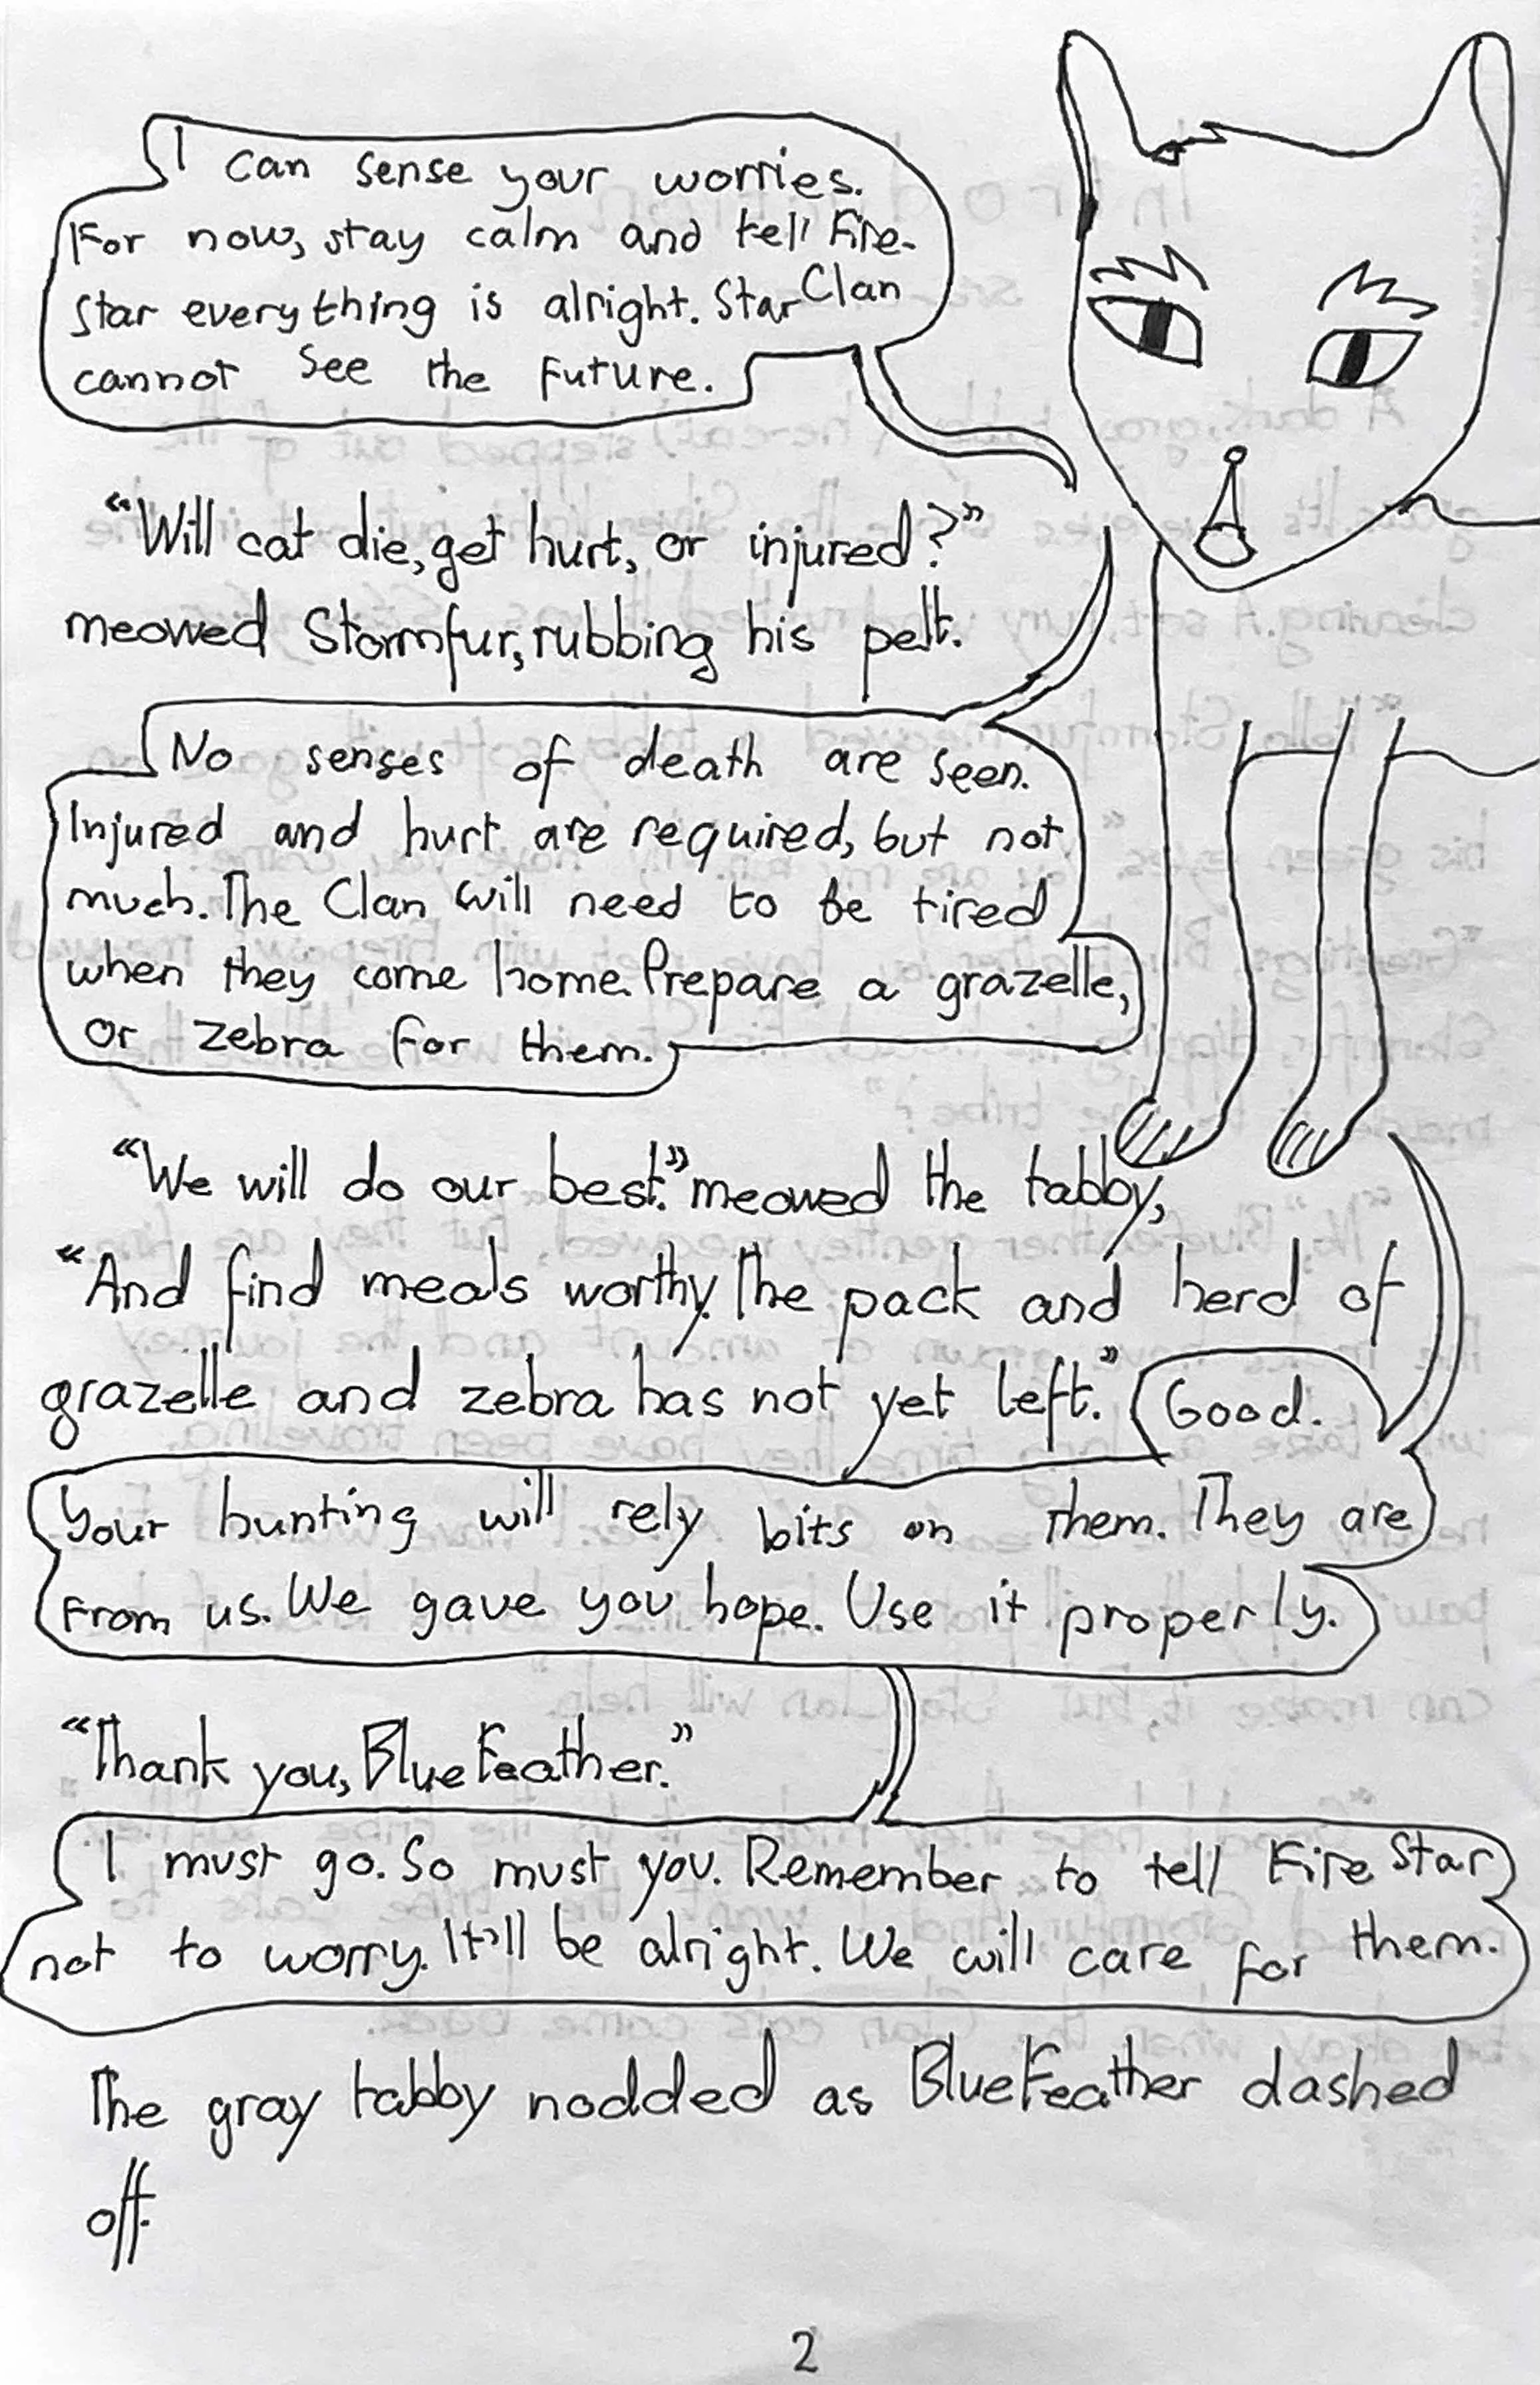 I can sense your worries.
For now, stay calm and tell Fire-
Star everything is alright. StarClan
cannot see the future.
"Will cat die, get hurt, or injured?"
meowed Stormfur, rubbing his pelt.
No senses of death are seen.
Injured and hurt are required, but not
much. The Clan will need to be tired
when they come home. Prepare a grazelle,
or zebra for them.
"We will do our best." meowed the tabby,
"And find meals worthy. The pack and herd of
grazelle and zebra has not yet left." Good.
Your hunting will rely bits on them. They are
from us. We gave you hope. Use it properly.
"Thank you, BlueFeather."
I must go. So must you. Remember to tell FireStar
not to worry. It'll be alright. We will care for them.
The gray tabby nodded as BlueFeather dashed
off.
2